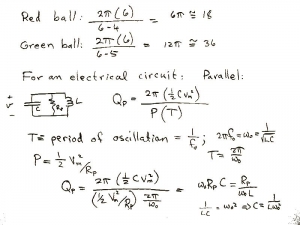 Red ball: 2π(6)/(6-4) = 6π ≅ 18
Green ball: 2π(6)/(6-5) = 12π ≅ 36
For an electrical circuit: Parallel:
+ v - C Rp L Qp = 2π(½CVm²)/P(T)
T = period of oscillation = 1/f₀; 2πf₀ = ω₀ = 1/√LC
P = ½ Vm²/Rp T = 2π/ω₀
Qp = 2π(½CVm²)/((½Vm²/Rp) 2π/ω₀) = ω₀RpC = Rp/ω₀L
1/LC = ω₀² ⇒ C = 1/Lω₀²